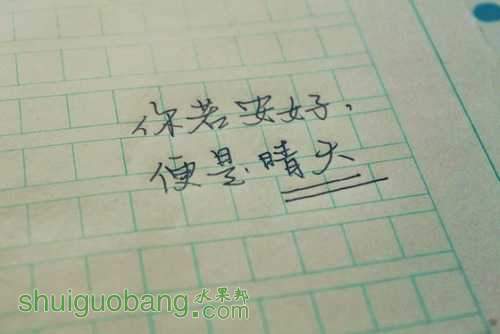 你若安好，
便是晴天
shuiguobang.水果邦.com